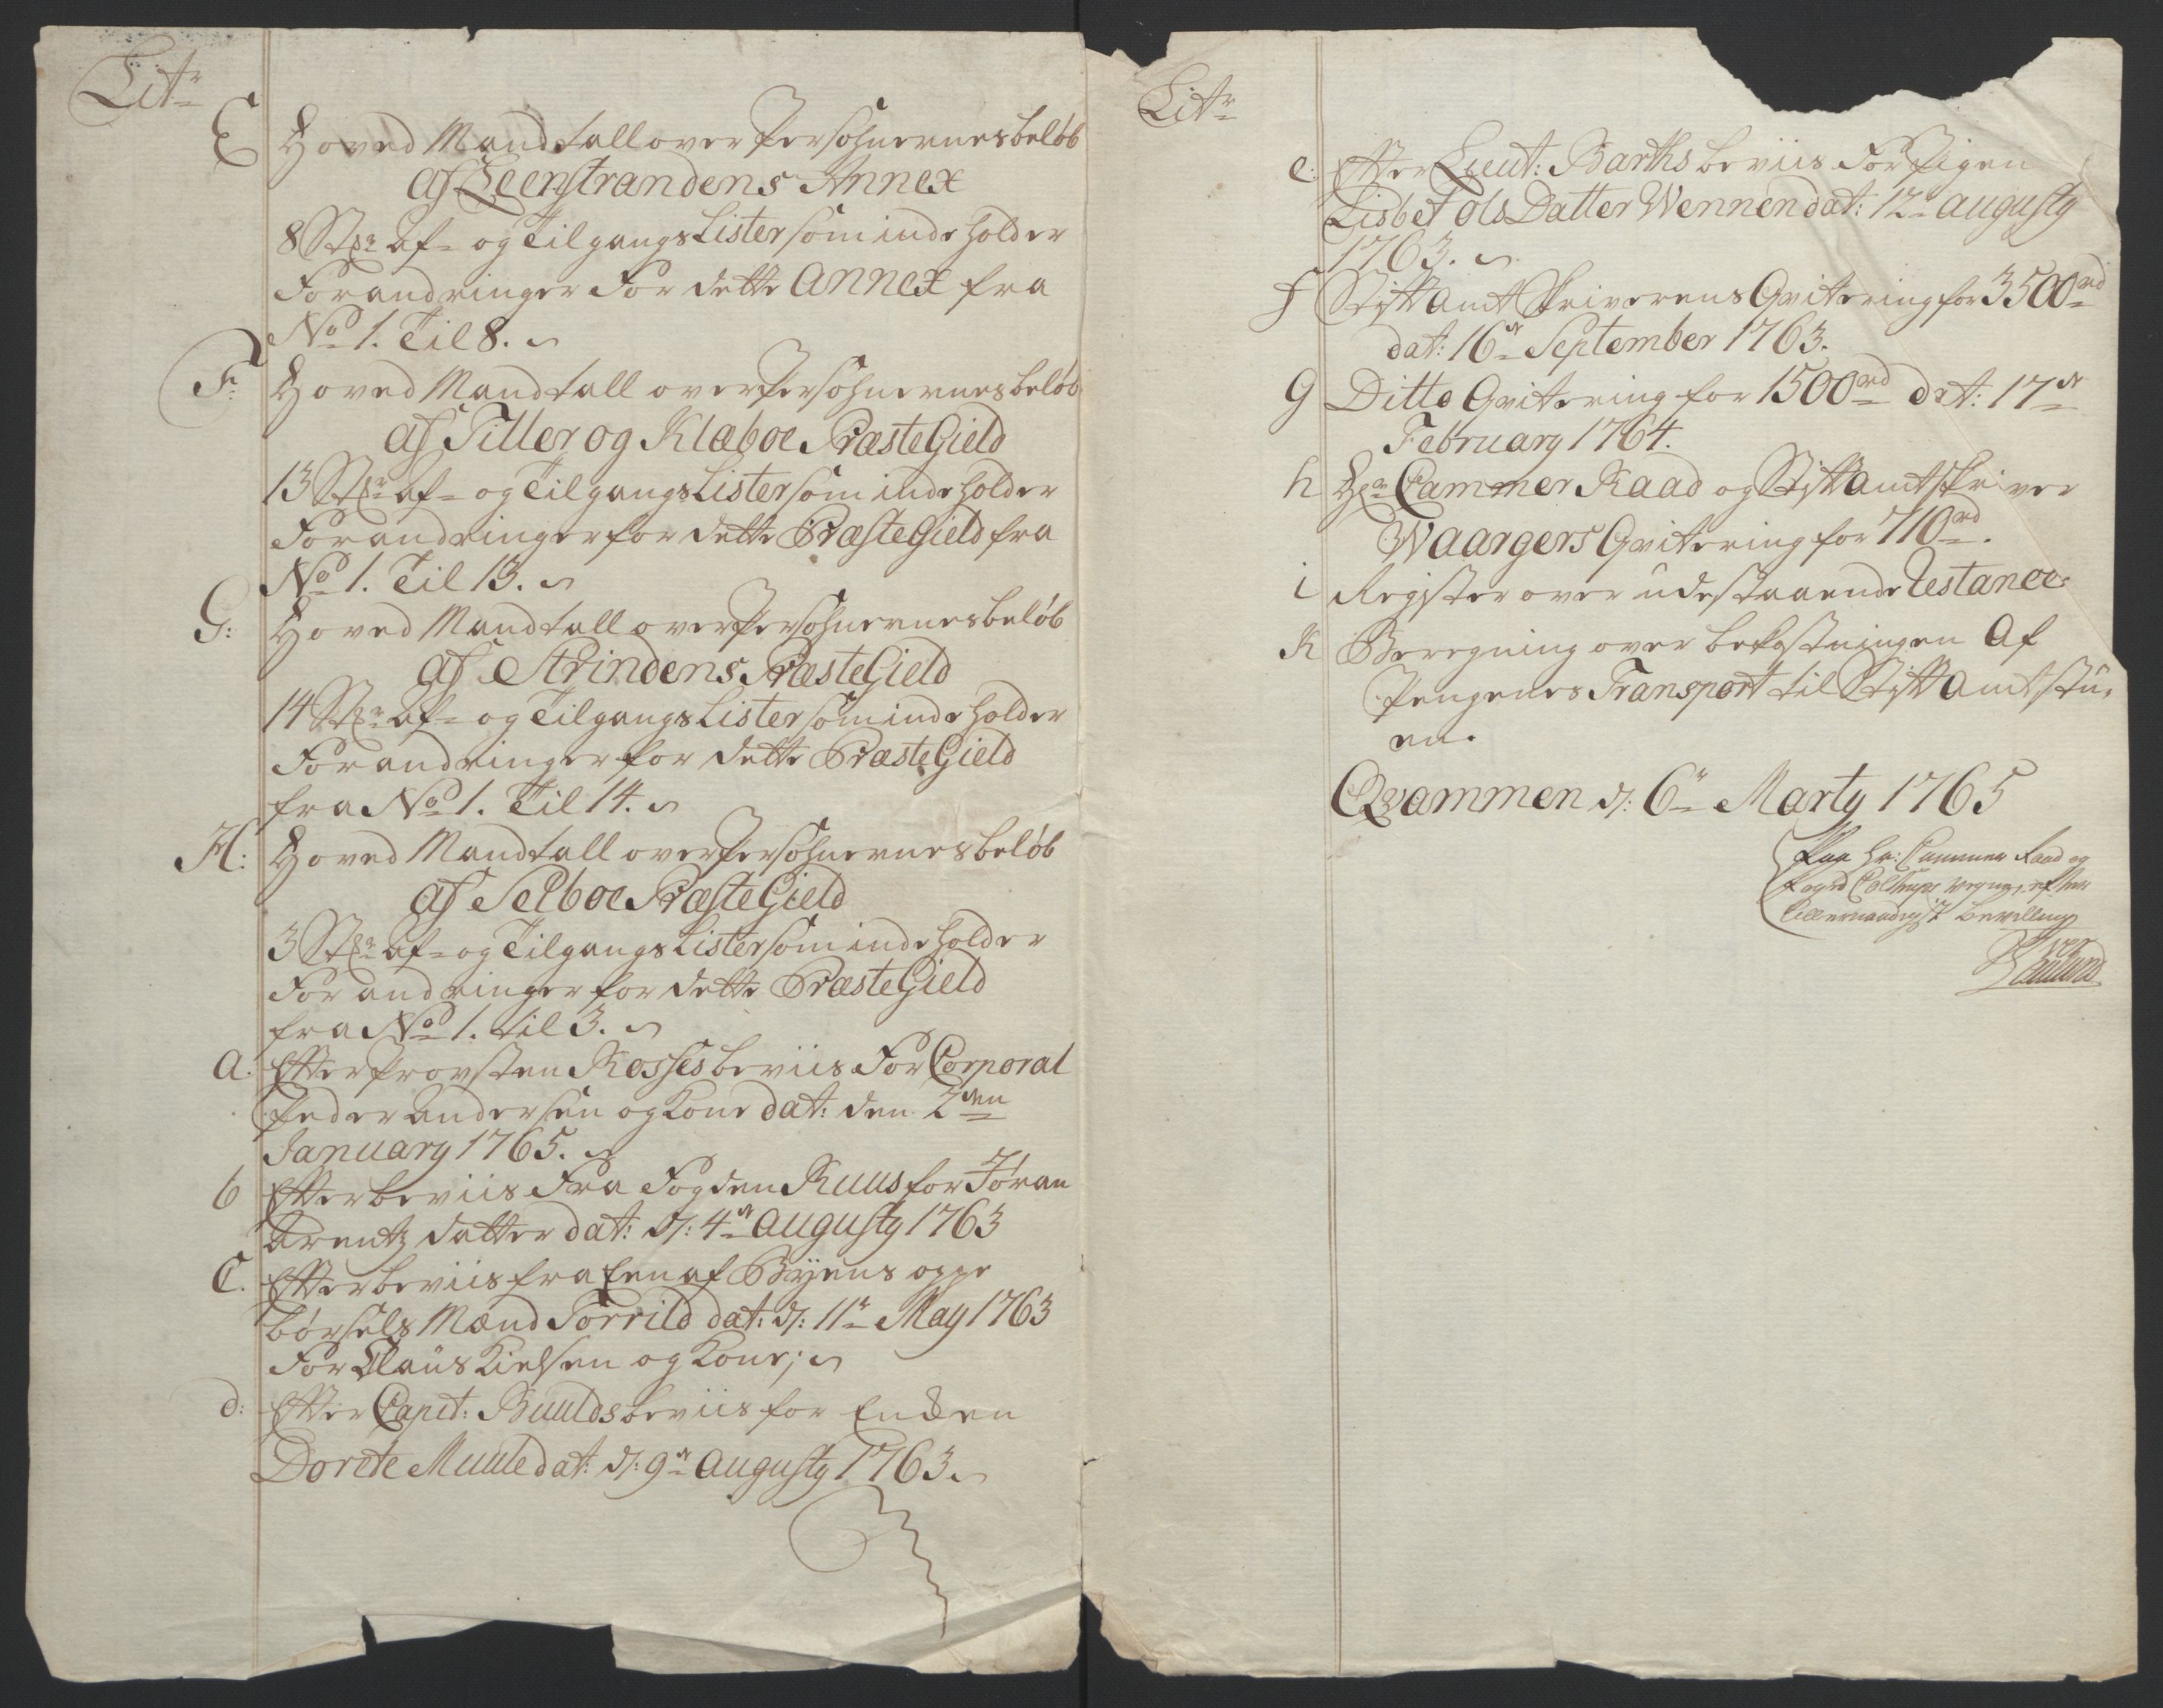 Litr
E Hoved Mandtall over Persohnernes beløb
af Leenstrandens Annex
8 Stkr af- og Tilgangs Lister som inde holder
Forandringer For dette Annex fra
No 1. Til 8.
F: Hoved Mandtall over Persohnernes beløb
af Tiller og Klæboe Præste Gield
13 Stkr af- og Tilgangs Lister som inde holder
Forandringer for dette Præste Gield fra
No 1. Til 13.
G: Hoved Mandtall over Persohnernes beløb
af Strindens Præste Gield
14 Stkr af- og Tilgangs Lister som inde holder
Forandringer for dette Præste Gield
fra No 1. Til 14.
H: Hoved Mandtall over Persohnernes beløb
af Selboe Præste Gield
3 Stkr af- og Tilgangs Lister som inde holder
Forandringer for dette Præste Gield
fra No 1. til 3.
a. Efter Provsten Kosses beviis For Corporal
Peder Andersen og Kone dat: den 2den
January 1765.
b Efter beviis Fra Fogden Ruus for Jøran
Arentz datter dat: d: 4de Augusty 1763
C. Efter beviis fra Een af Byens oppe
børsels Mænd Torrild dat: d: 11te May 1763
For Claus Kielsen og Kone;
d: Efter Capit: Buulds beviis for Enken
Dorete Muule dat: d: 9de Augusty 1763
Litr
e: Efter Lieut: Barths beviis For Pigen
Lisbet Ols Datter Wennen dat: 12te Augusty
1763.
f Stift Amt Skriverens Qvitering for 3500rd
dat: 16de September 1763.
g Ditto Qvitering for 1500rd dat: 17de
February 1764.
h Hr Cammer Raad og Stift Amt skriver
Waargers Qvitering for 710rd.
i Register over udestaaende Restance
K Beregning over bekostningen af
Pengenes Transport til Stift Amtstu,
en.
Qvammen d: 6te Marty 1765
Paa Hr: Cammer Raad og
Foged Colstrups vegne, efter
Allernaadigst bevilling